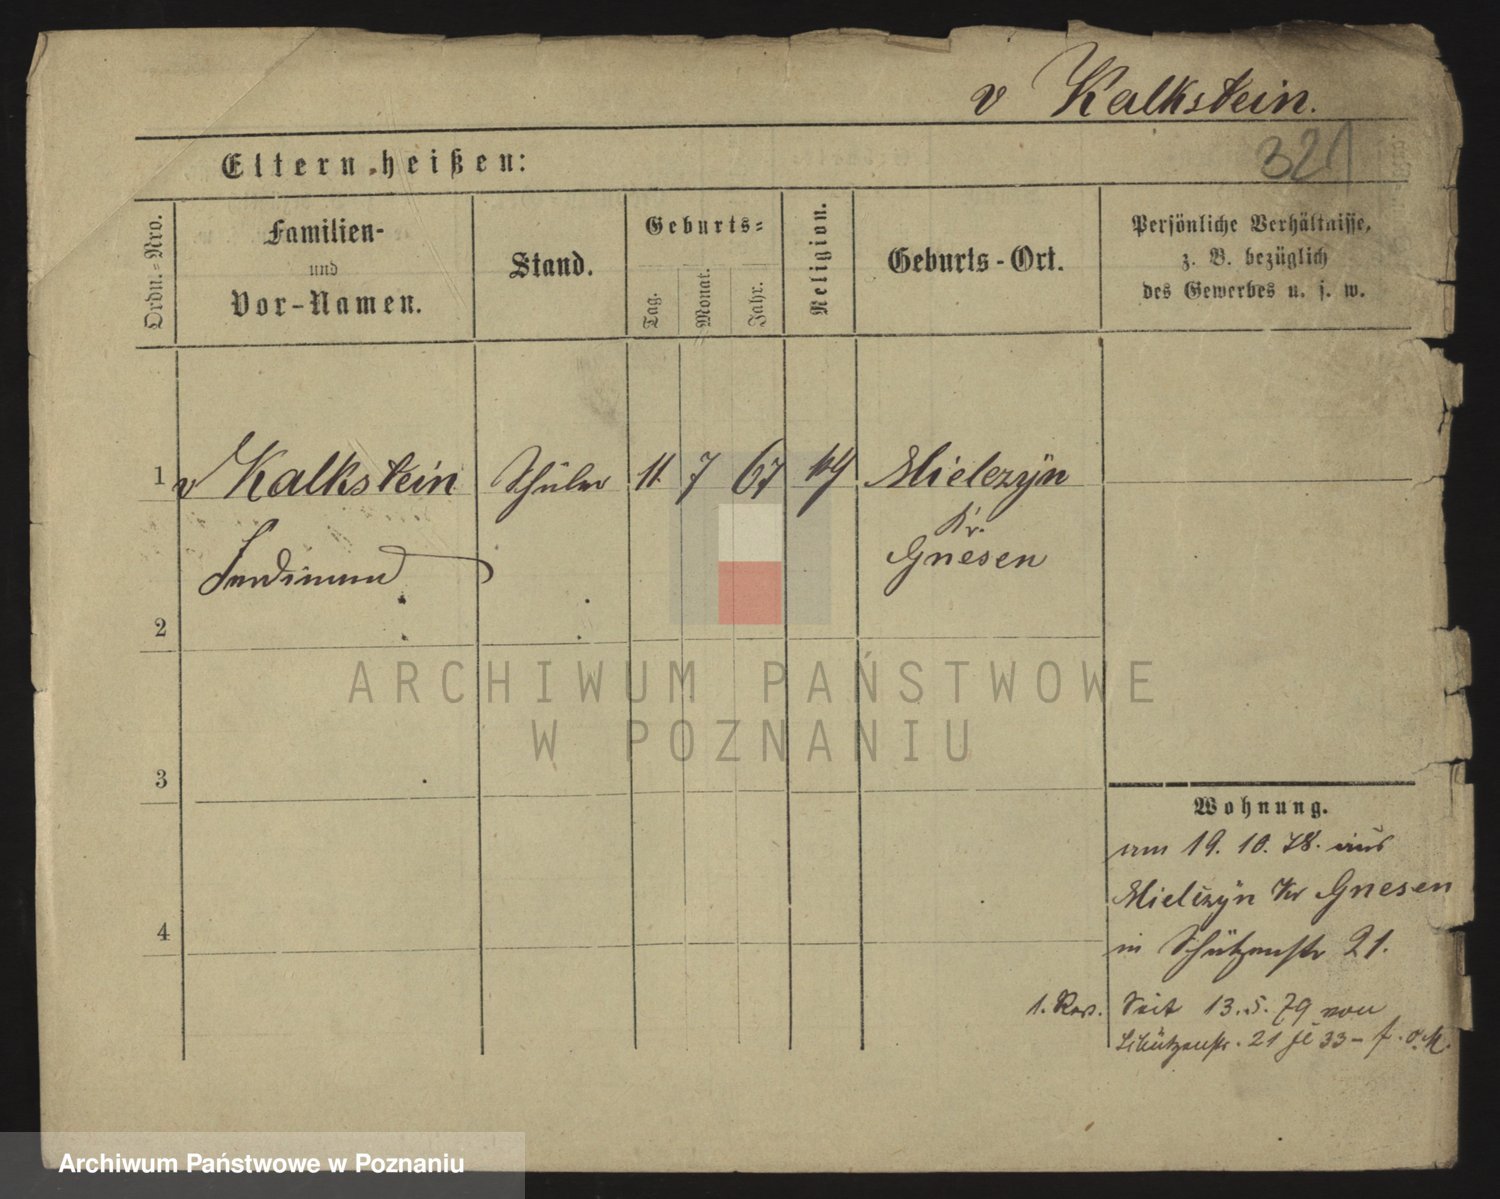 v Kalkstein.
321
Eltern heißen:
Ordn.-Nro.
Familien-
und
Vor-Namen.
Stand.
Geburts-
Tag.
Monat.
Jahr.
Religion.
Geburts-Ort.
Persönliche Verhältnisse,
z. B. bezüglich
des Gewerbes u. s. w.
1 v Kalkstein Schüler 11. 7 67 Mielczÿn
Kr.
Gnesen
Ferdinand
2
3
4
Wohnung.
am 19. 10. 78. aus
Mielczÿn Kr Gnesen
in Schützenstr 21.
1. Rev. Seit 13. 5. 79 von
Schützenstr. 21 33
ARCHIWUM PAŃSTWOWE
W POZNANIU
Archiwum Państwowe w Poznaniu